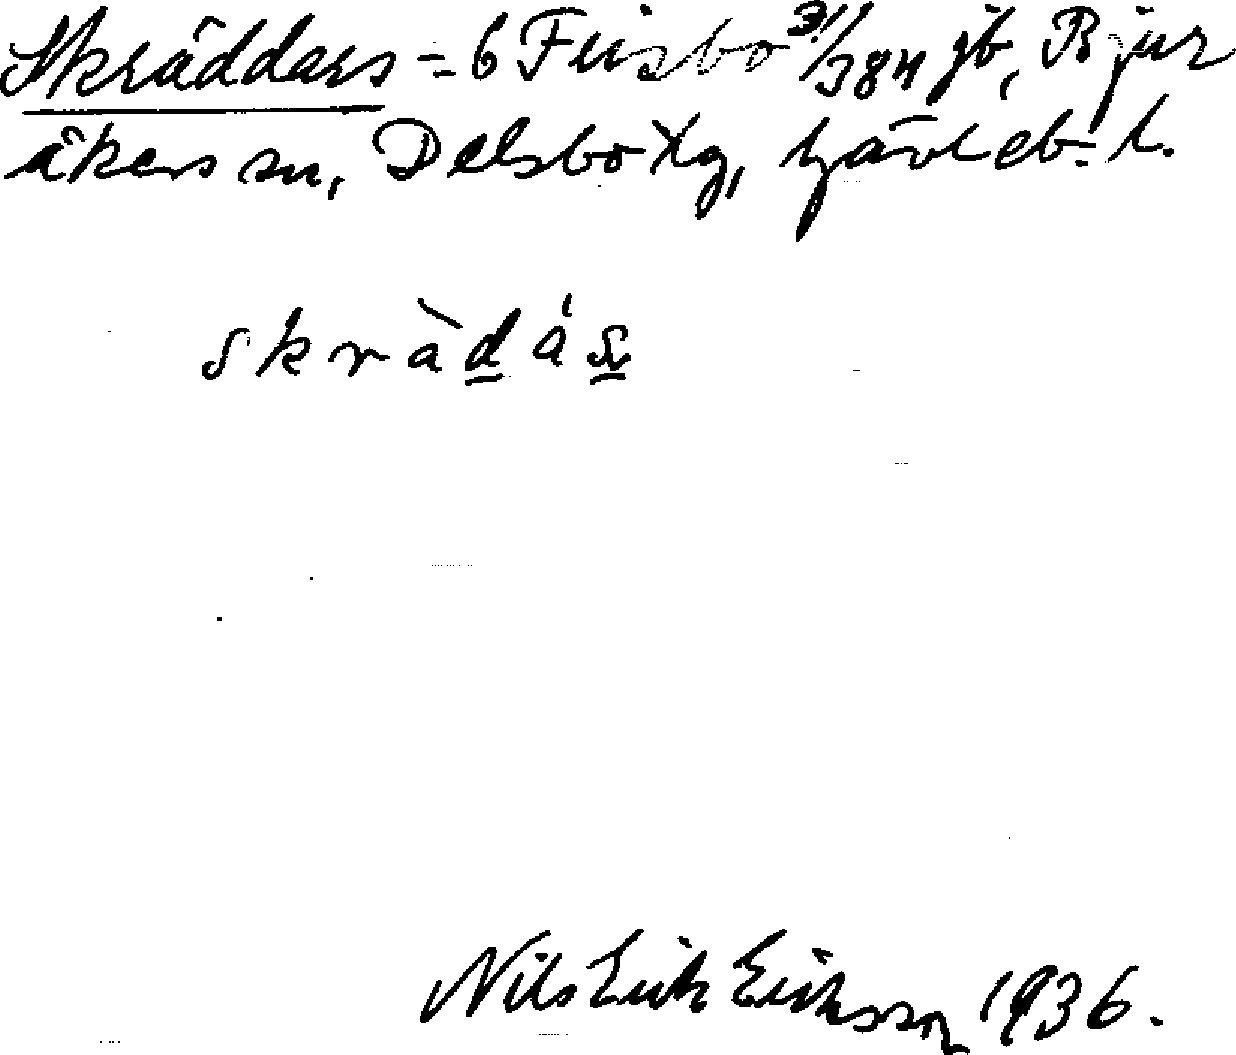 Skräddars = 6 Frisbo 3/384 jb, Bjur
åkers sn, Delsbo tg, Gävleb. l.
skràdás
Nils Erik Eriksson 1936.